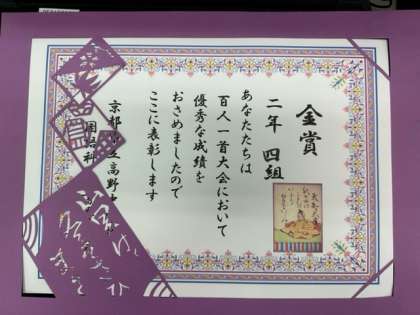 金賞
二年 四組
あなたたちは
百人一首大会において
優秀な成績を
おさめましたので
ここに表彰します
京都市立高野中
国語科